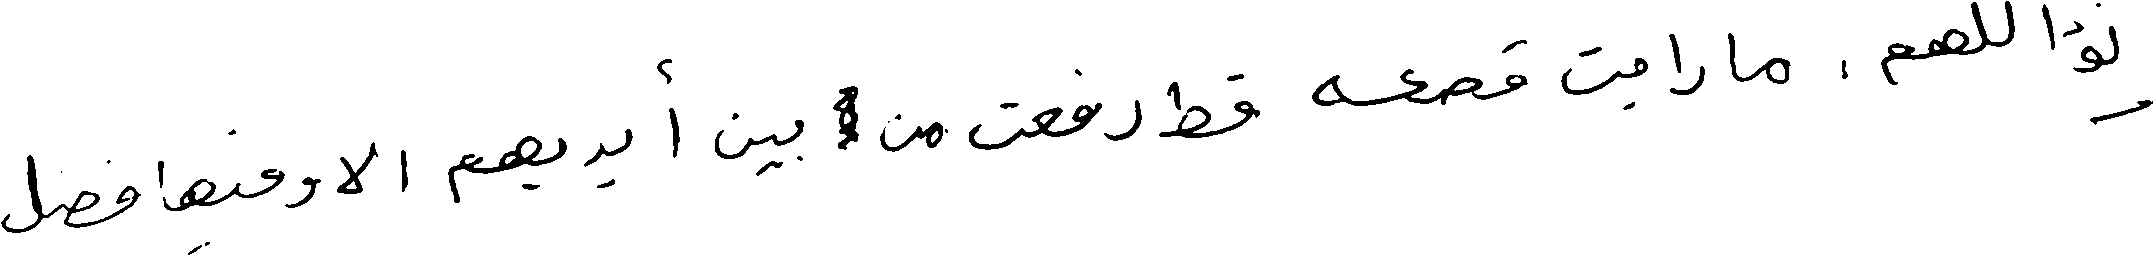 نوا للهم، ما رايت قصعه قط رفعت من بين أيديهم الا وفيها فضل